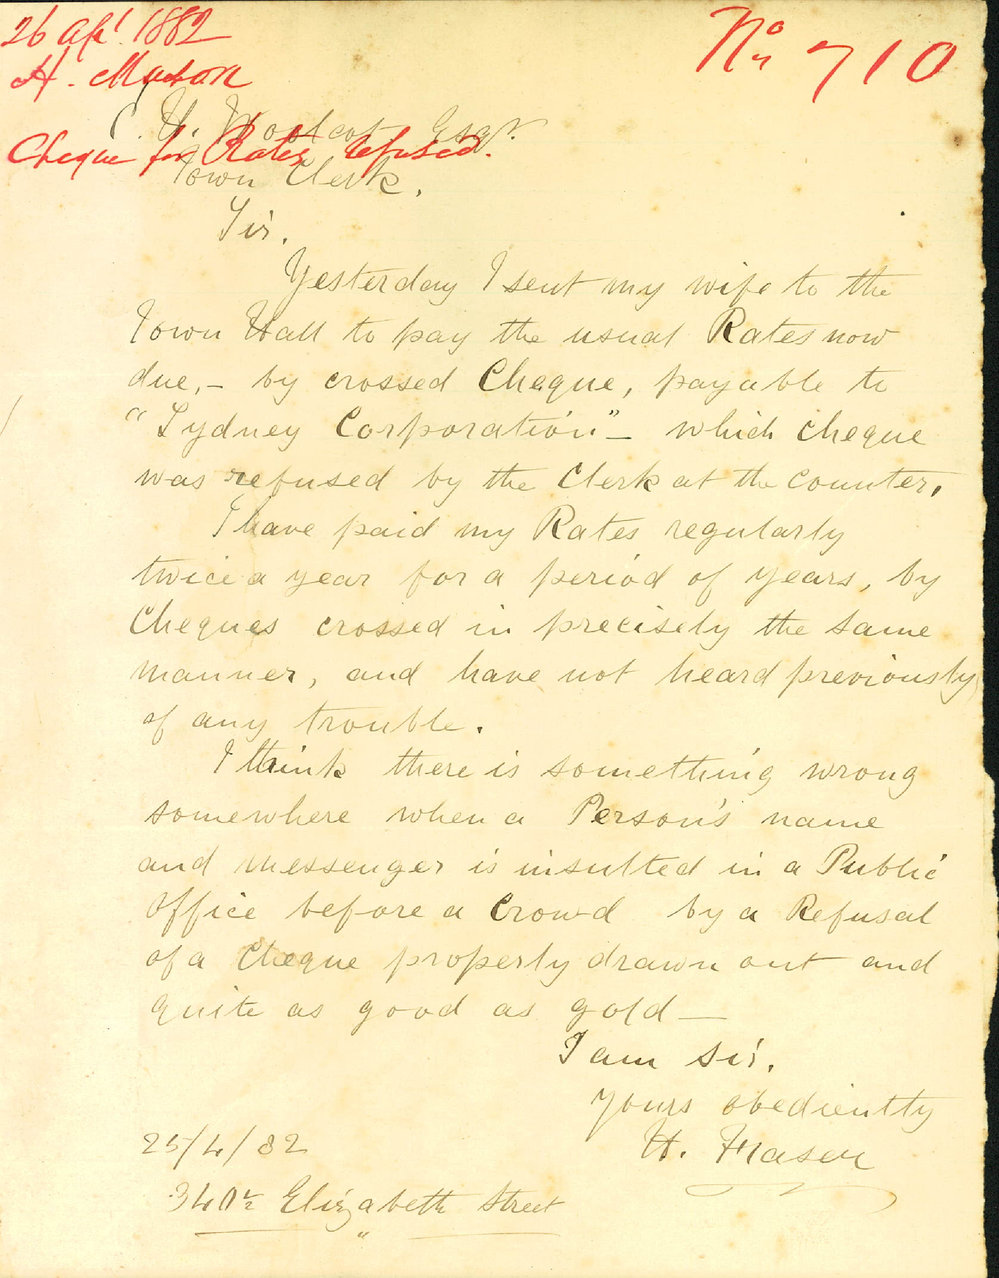 26 Apl. 1882
No. 710
H. Mason
C. H. Woolcott Esqr.
Cheque for Rates refused.
Town Clerk.
Sir.
Yesterday I sent my wife to the
Town Hall to pay the usual Rates now
due, – by crossed Cheque, payable to
"Sydney Corporation" – which cheque
was refused by the Clerk at the counter.
I have paid my Rates regularly
twice a year for a period of years, by
Cheques crossed in precisely the same
manner, and have not heard previously
of any trouble.
I think there is something wrong
somewhere when a Person's name
and messenger is insulted in a Public
Office before a Crowd by a Refusal
of a Cheque properly drawn out and
quite as good as gold —
I am Sir.
Yours obediently
H. Fraser
25/4/82
Elizabeth Street